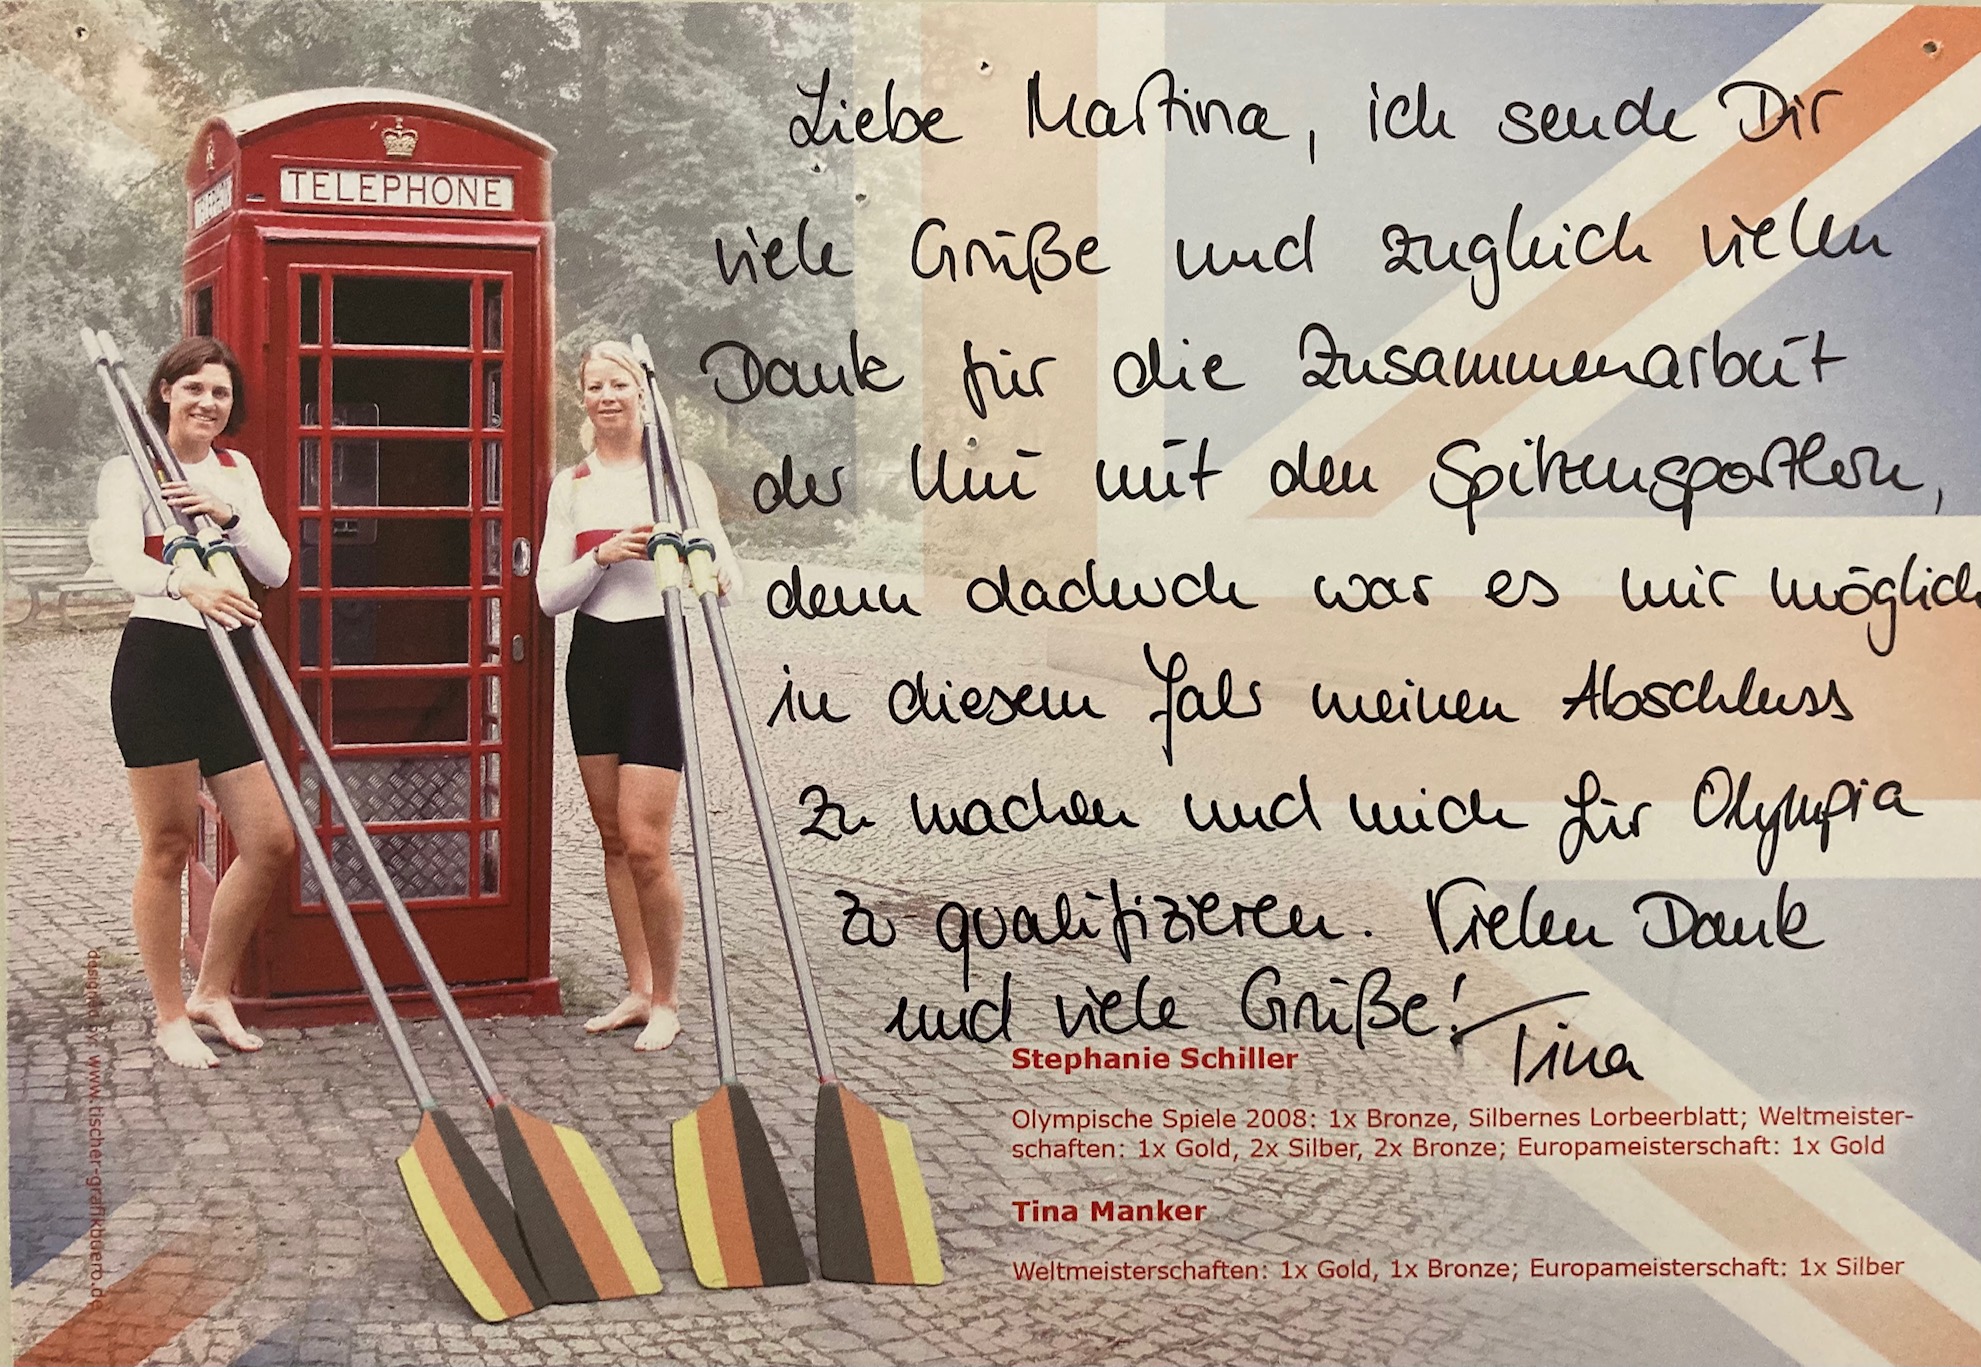 TELEPHONE
Liebe Martina, ich sende Dir
viele Grüße und zugleich vielen
Dank für die Zusammenarbeit
der Uni mit den Spitzensportlern,
denn dadurch war es mir möglich
in diesem Jahr meinen Abschluss
zu machen und mich für Olympia
zu qualifizieren. Vielen Dank
und viele Grüße!
Tina
Stephanie Schiller
Olympische Spiele 2008: 1x Bronze, Silbernes Lorbeerblatt; Weltmeister-
schaften: 1x Gold, 2x Silber, 2x Bronze; Europameisterschaft: 1x Gold
Tina Manker
Weltmeisterschaften: 1x Gold, 1x Bronze; Europameisterschaft: 1x Silber
designed by: www.tischer-grafikbuero.de